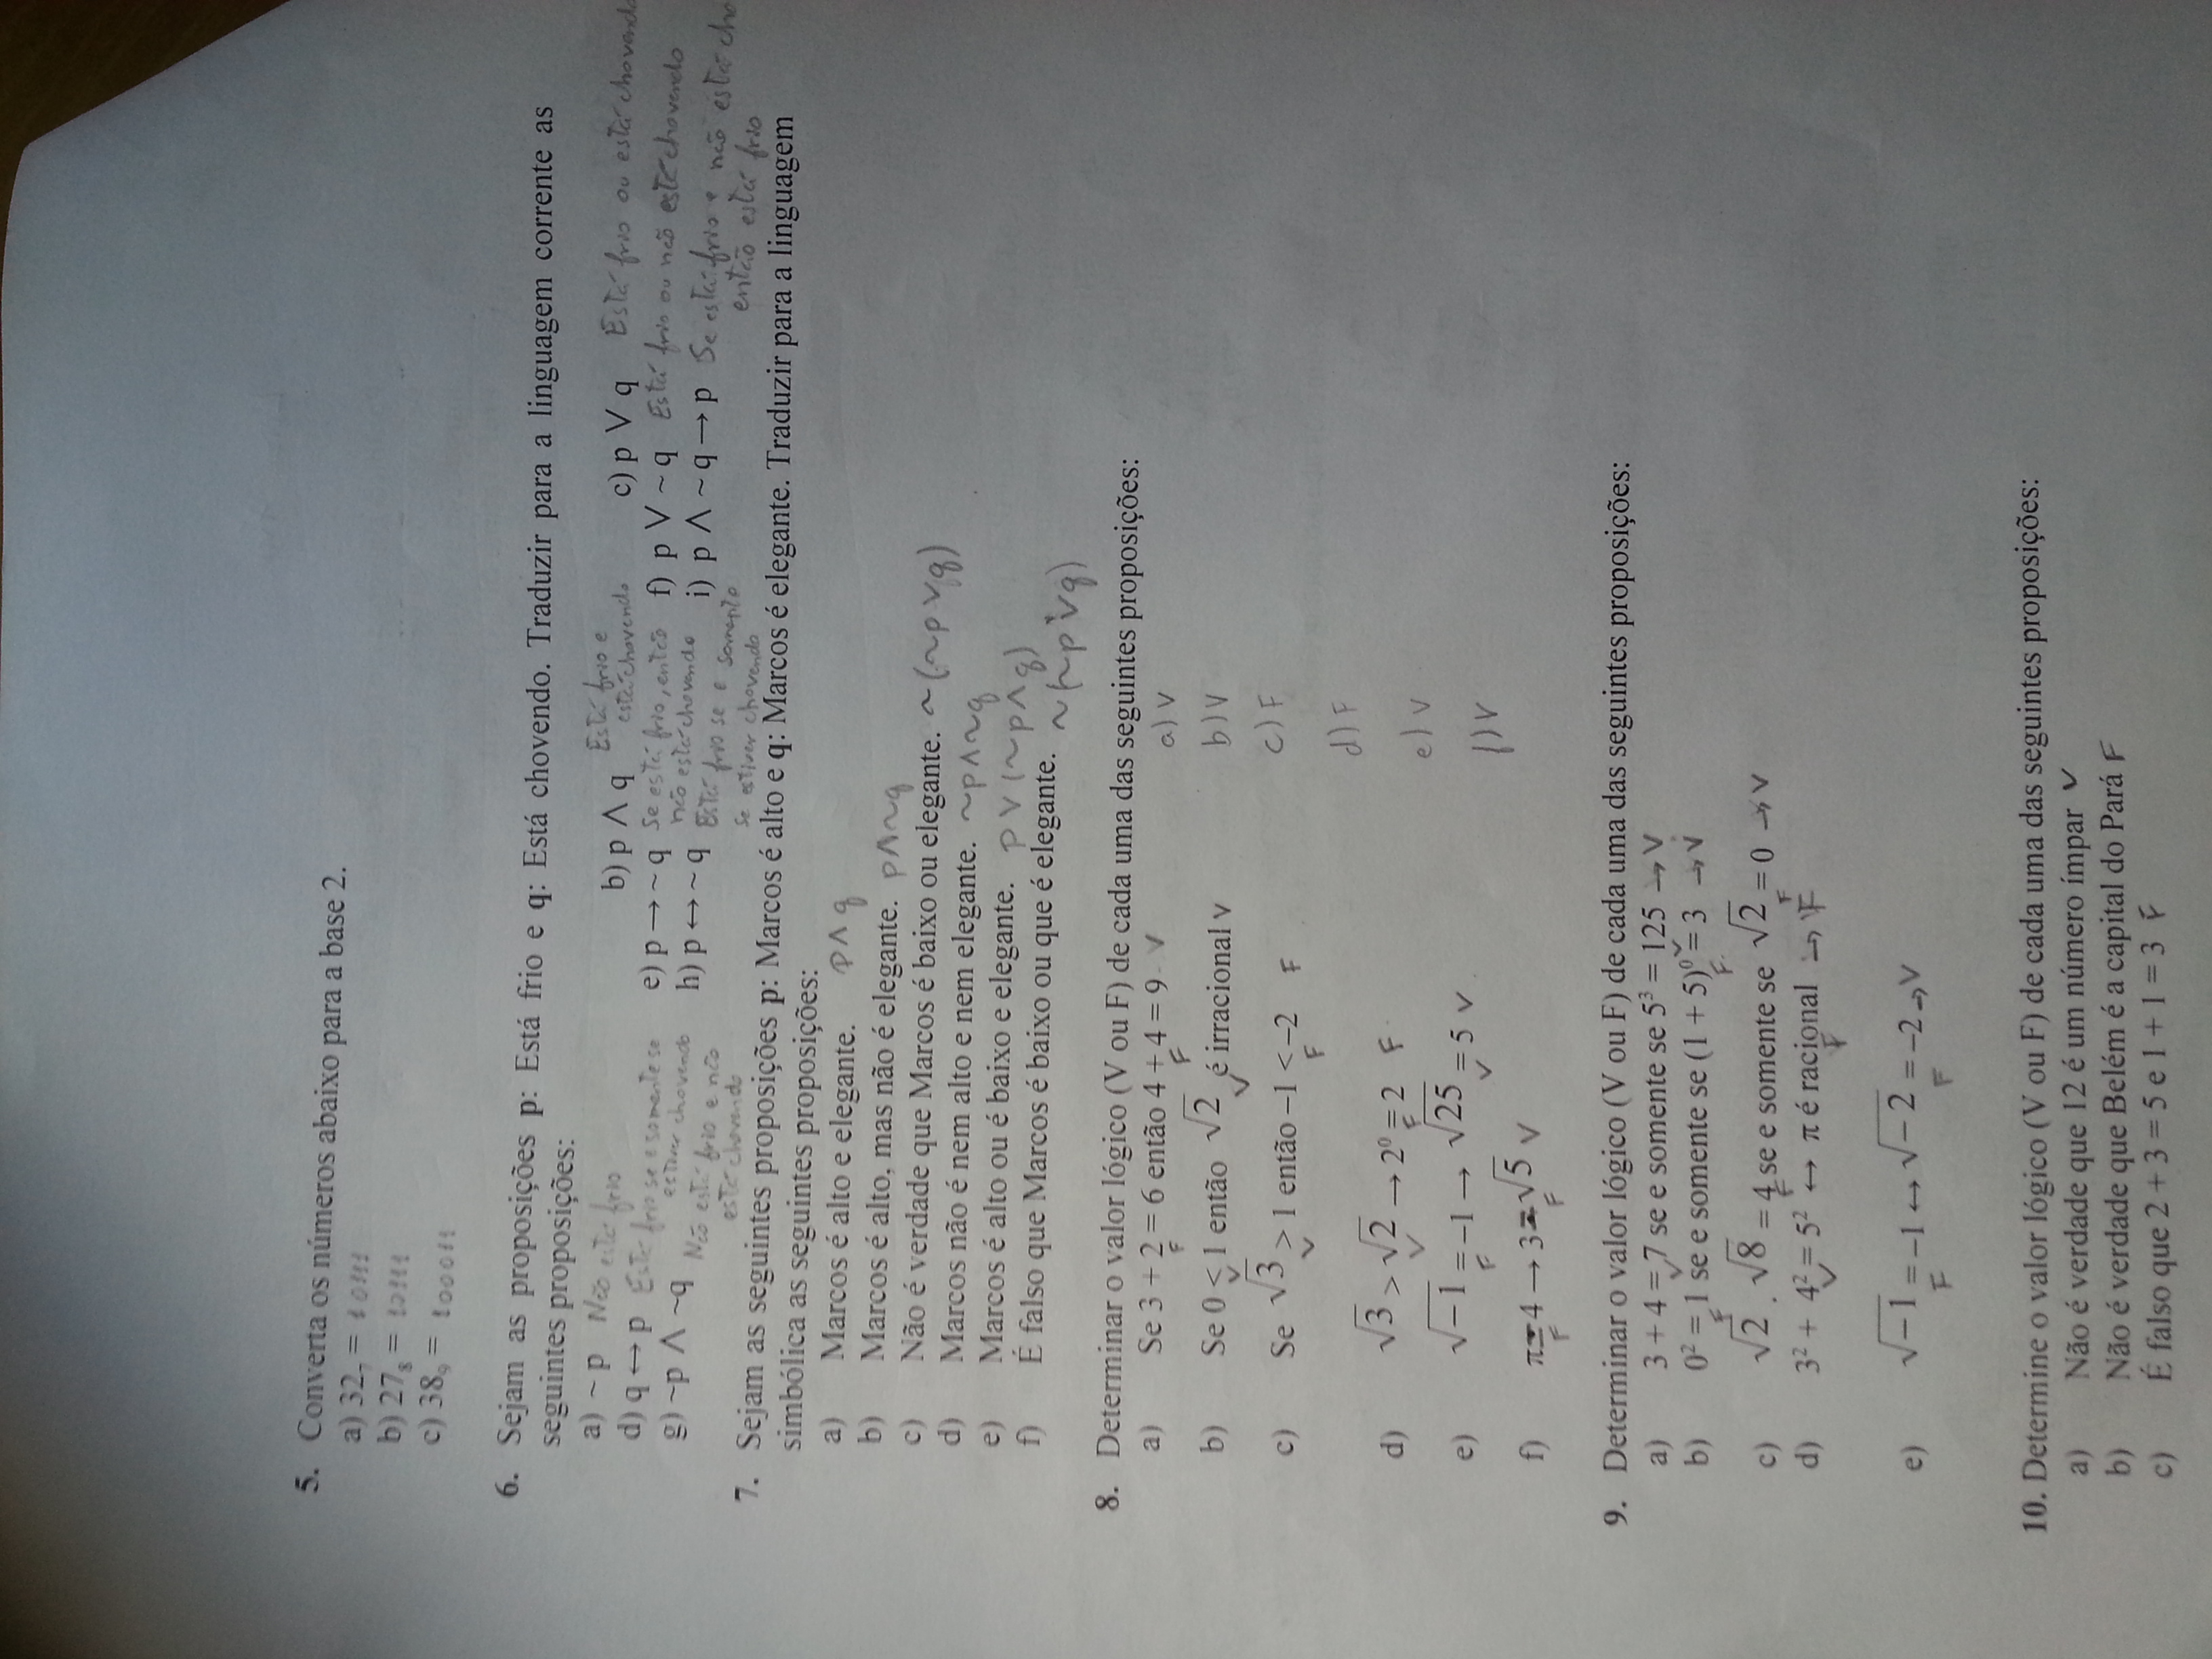 5. Converta os números abaixo para a base 2.
a) 32₇ = 10111
b) 27₈ = 10111
c) 38₉ = 100011
6. Sejam as proposições p: Está frio e q: Está chovendo. Traduzir para a linguagem corrente as
seguintes proposições:
a) ~ p Não está frio b) p ∧ q Está frio e está chovendo c) p ∨ q Está frio ou está chovendo
d) q ↔ p Está frio se e somente se estiver chovendo e) p → ~ q Se está frio, então não está chovendo f) p ∨ ~ q Está frio ou não está chovendo
g) ~p ∧ ~q Não está frio e não está chovendo h) p ↔ ~ q Está frio se e somente se estiver chovendo i) p ∧ ~ q → p Se está frio e não está cho
então está frio
7. Sejam as seguintes proposições p: Marcos é alto e q: Marcos é elegante. Traduzir para a linguagem
simbólica as seguintes proposições:
a) Marcos é alto e elegante. p ∧ q
b) Marcos é alto, mas não é elegante. p ∧ ~q
c) Não é verdade que Marcos é baixo ou elegante. ~(~p ∨ q)
d) Marcos não é nem alto e nem elegante. ~p ∧ ~q
e) Marcos é alto ou é baixo e elegante. p ∨ (~p ∧ q)
f) É falso que Marcos é baixo ou que é elegante. ~(~p ∨ q)
8. Determinar o valor lógico (V ou F) de cada uma das seguintes proposições:
a) Se 3 + 2 = 6 então 4 + 4 = 9 V a) V
F F
b) Se 0 < 1 então √2 é irracional V b) V
V V
c) Se √3 > 1 então −1 < −2 F c) F
V F
d) √3 > √2 → 2⁰ = 2 F d) F
V F
e) √−1 = −1 → √25 = 5 V e) V
F V
f) π = 4 → 3 = √5 V f) V
F F
9. Determinar o valor lógico (V ou F) de cada uma das seguintes proposições:
a) 3 + 4 = 7 se e somente se 5³ = 125 → V
V V
b) 0² = 1 se e somente se (1 + 5)⁰ = 3 → V
F F
c) √2 . √8 = 4 se e somente se √2 = 0 → V
F F
d) 3² + 4² = 5² ↔ π é racional → F
V F
e) √−1 = −1 ↔ √−2 = −2 → V
F F
10. Determine o valor lógico (V ou F) de cada uma das seguintes proposições:
a) Não é verdade que 12 é um número ímpar V
b) Não é verdade que Belém é a capital do Pará F
c) É falso que 2 + 3 = 5 e 1 + 1 = 3 F